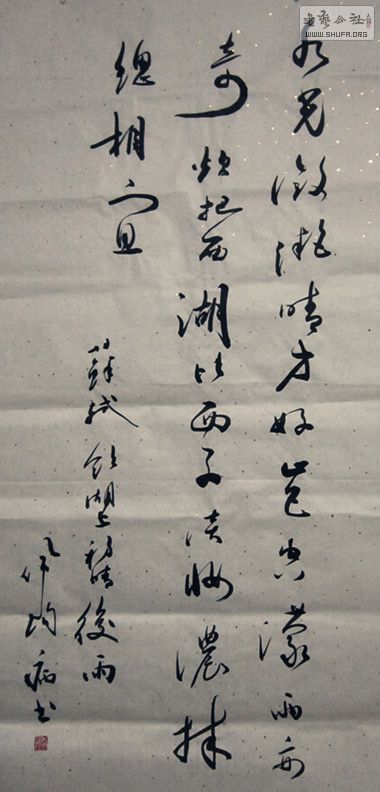 書藝公社
WWW.SHUFA.ORG
水光瀲灩晴方好山色空濛雨亦
奇欲把西湖比西子淡妝濃抹
總相宜
蘇軾飲湖上初晴後雨
书